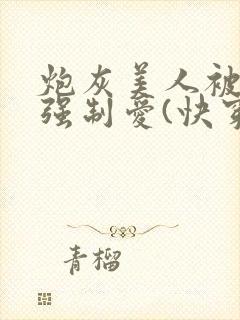 炮灰美人被
强制愛(快穿
青榴